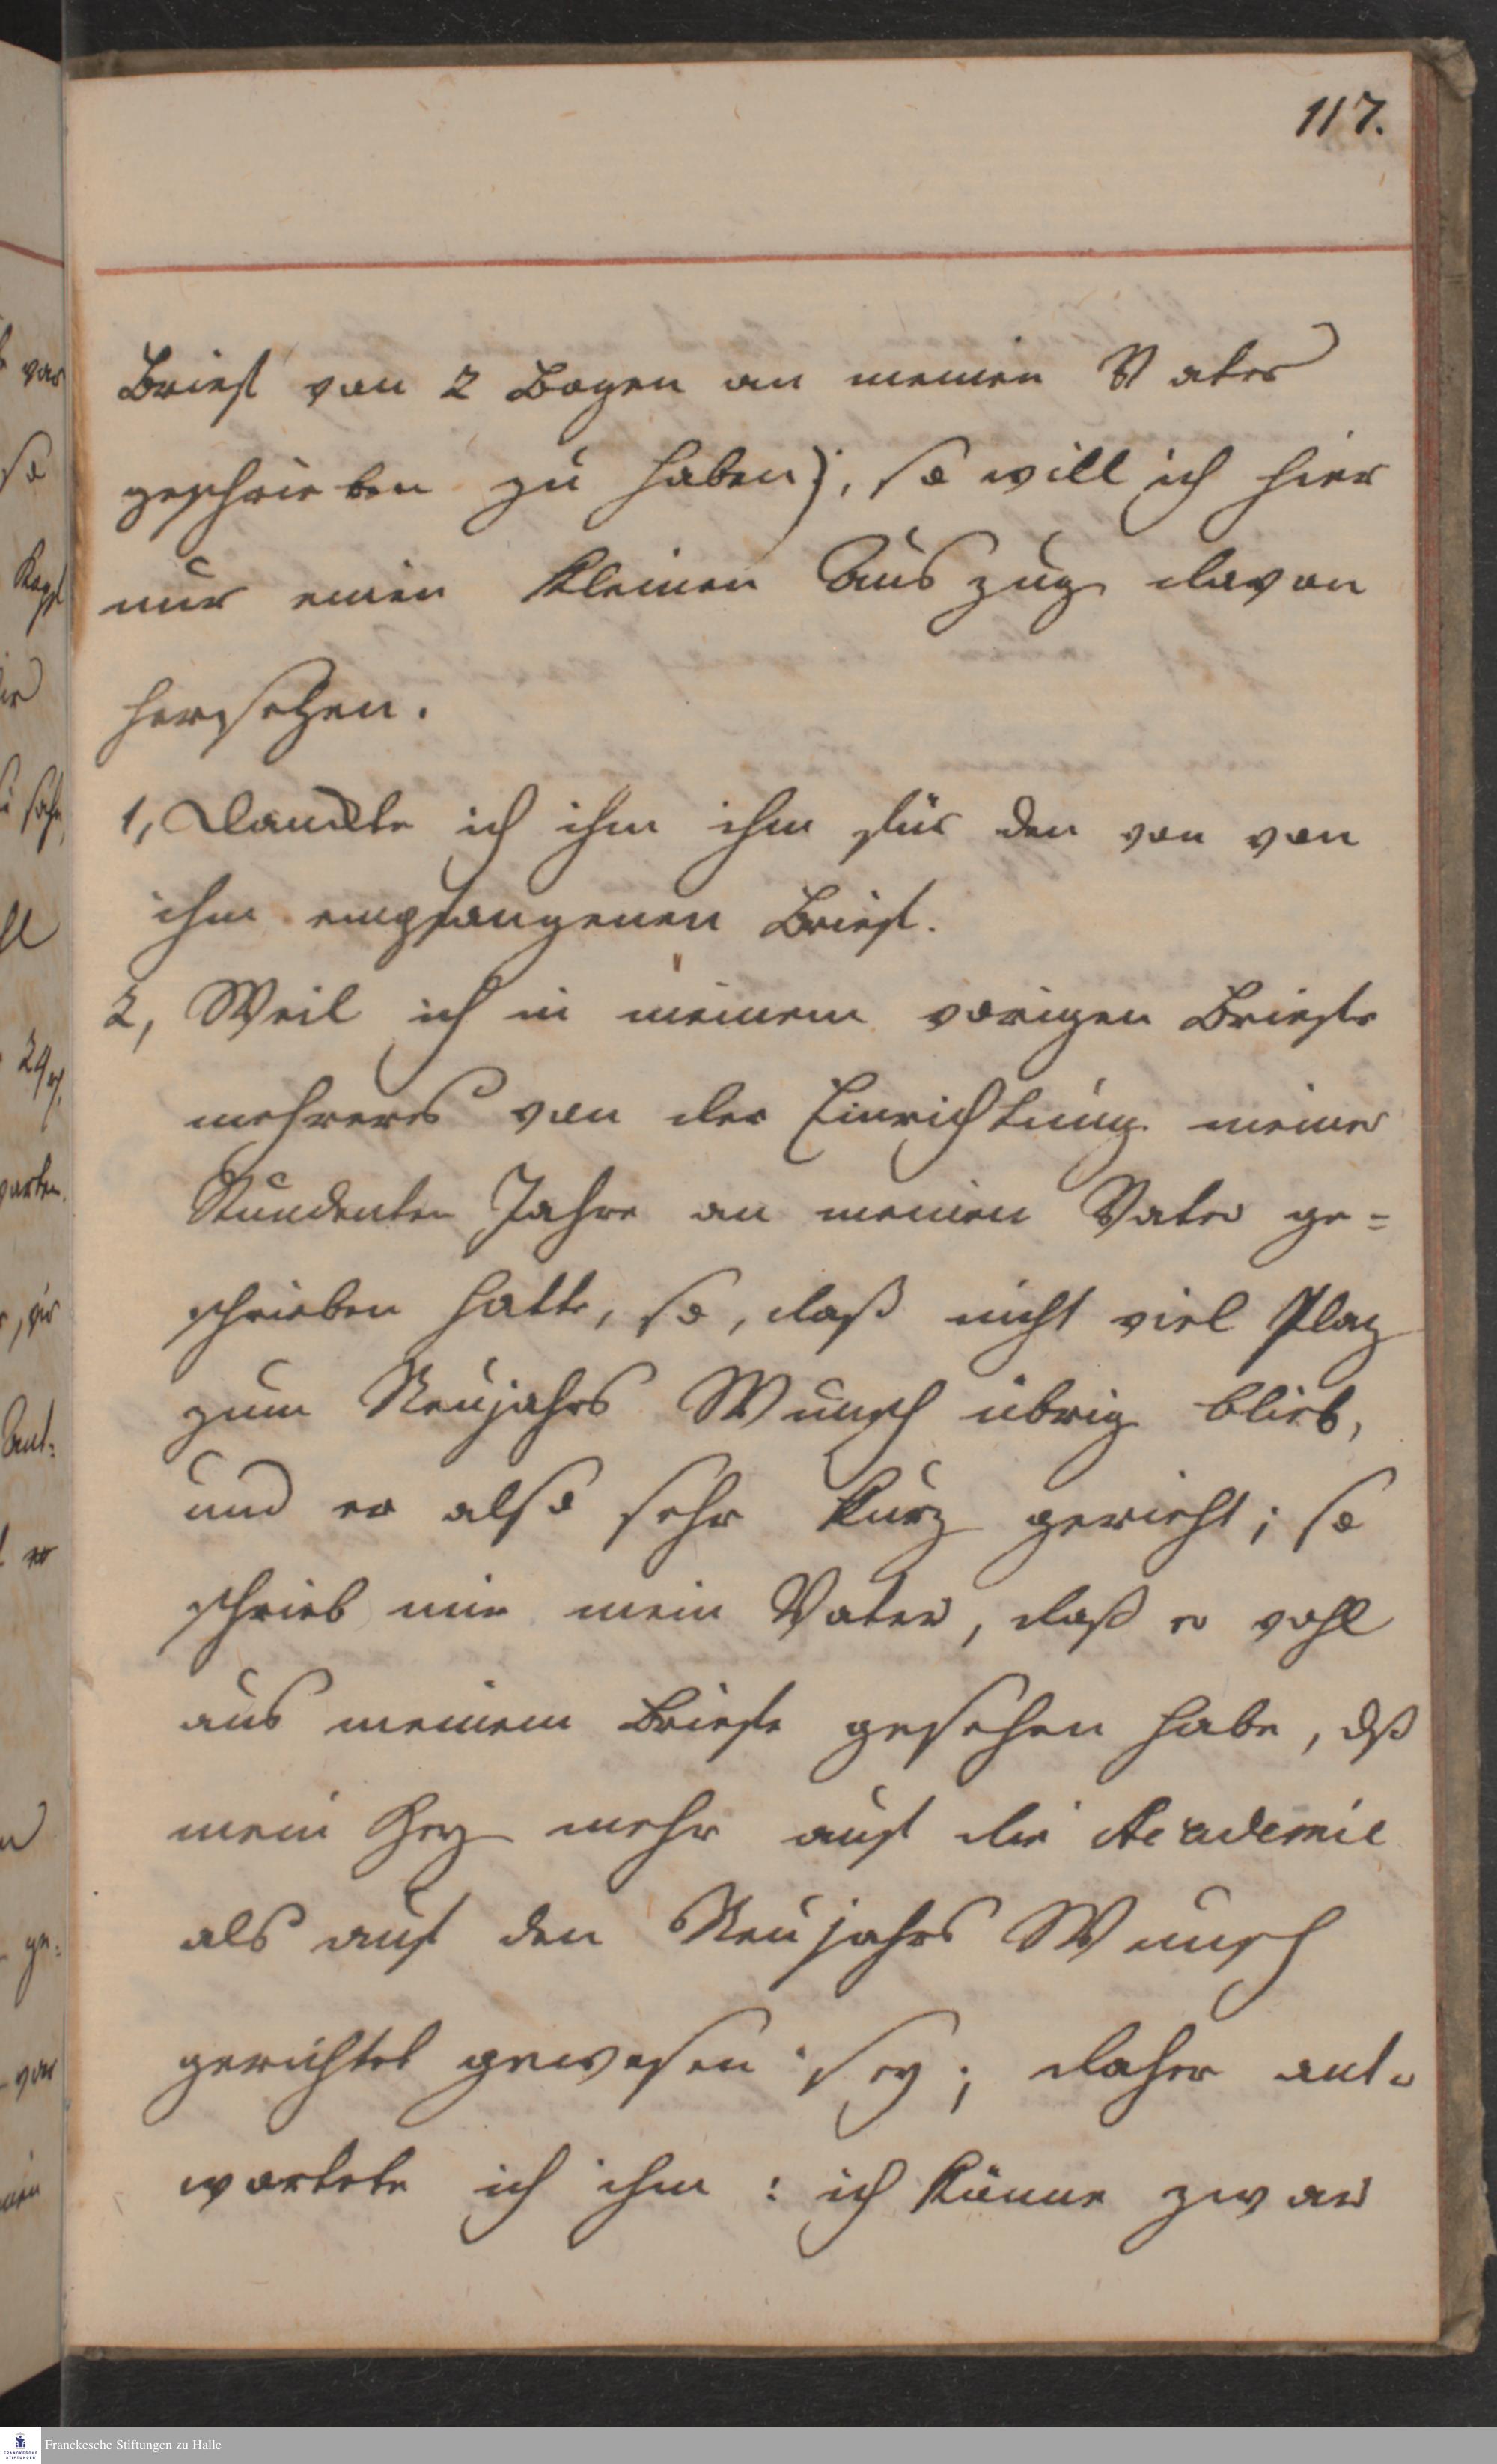 117.
Brief von 2 Bogen an meinen Vater
geschrieben zu haben), so will ich hier
nur einen kleinen Auszug davon
hersetzen.
1, Danckte ich ihm ihm für den von von
ihm empfangenen Brief.
2, Weil ich in meinem vorigen Briefe
mehreres von der Einrichtung meiner
Studenten Jahre an meinen Vater ge=
schrieben hatte, so, daß nicht viel Plaz
zum Neujahrs Wunsch übrig blieb,
und er also sehr kurz gerieht; so
schrieb mir mein Vater, daß er wohl
aus meinem Briefe gesehen habe, dß
mein Herz mehr auf die Academie
als auf den Neujahrs Wunsch
gerichtet gewesen sey; daher ant=
wortete ich ihm: ich könne zwar
Franckesche Stiftungen zu Halle